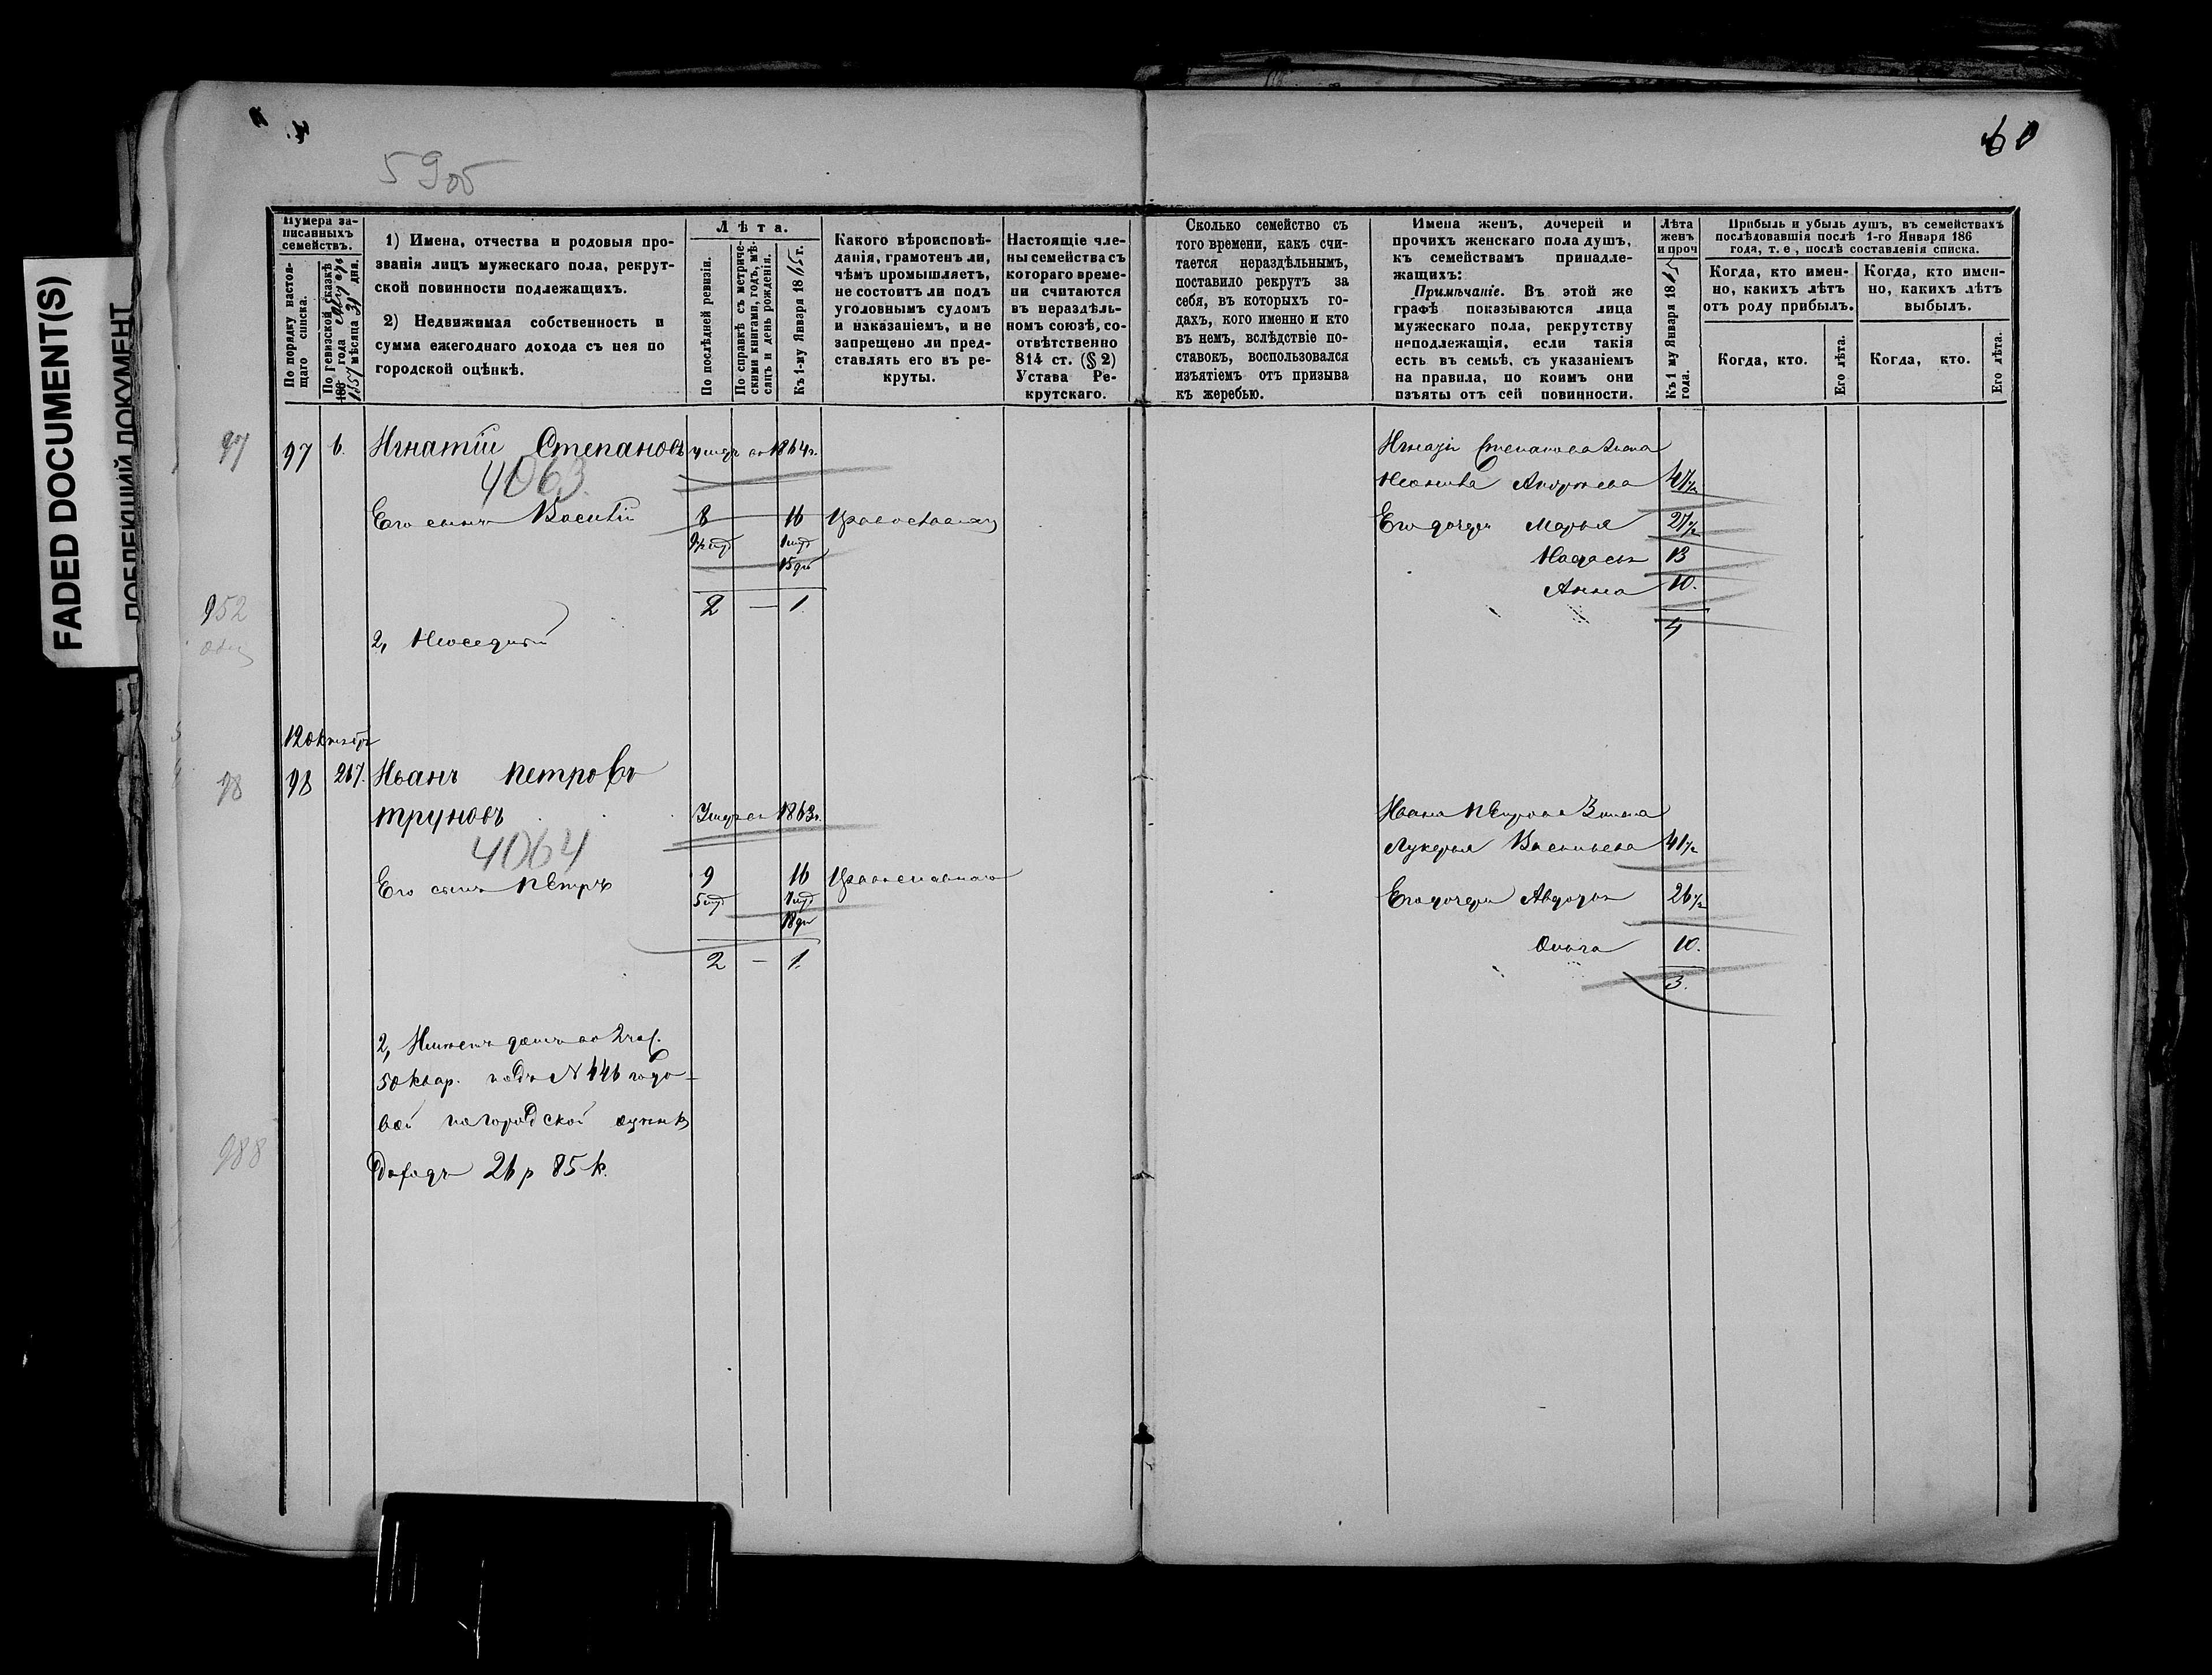 FADED DOCUMENT(S)
59об
60
Нумера записанныхъ семействъ.
По порядку настоящаго списка.
По ревизской сказкѣ 1857 года мѣсяца 31 дня.
1) Имена, отчества и родовыя прозванія лицъ мужескаго пола, рекрутской повинности подлежащихъ.
2) Недвижимая собственность и сумма ежегоднаго дохода съ нея по городской оцѣнкѣ.
Лѣта.
По послѣдней ревизіи.
По справкѣ съ метрическими книгами, годъ, мѣсяцъ и день рожденія.
Къ 1-му Января 1865 г.
Какого вѣроисповѣданія, грамотенъ ли, чѣмъ промышляетъ, не состоитъ ли подъ уголовнымъ судомъ и наказаніемъ, и не запрещено ли представлять его въ рекруты.
Настоящіе члены семейства съ котораго времени считаются въ нераздѣльномъ союзѣ, соотвѣтственно 814 ст. (§ 2) Устава Рекрутскаго.
Сколько семейство съ того времени, какъ считается нераздѣльнымъ, поставило рекрутъ за себя, въ которыхъ годахъ, кого именно и кто въ немъ, вслѣдствіе поставокъ, воспользовался изъятіемъ отъ призыва къ жеребью.
Имена женъ, дочерей и прочихъ женскаго пола душъ, къ семействамъ принадлежащихъ:
Примѣчаніе. Въ этой же графѣ показываются лица мужескаго пола, рекрутству неподлежащія, если такія есть въ семьѣ, съ указаніемъ на правила, по коимъ они изъяты отъ сей повинности.
Лѣта женъ и проч
Къ 1 му Января 1865 года.
Прибыль и убыль душъ, въ семействахъ послѣдовавшія послѣ 1-го Января 186 года, т. е, послѣ составленія списка.
Когда, кто именно, какихъ лѣтъ отъ роду прибылъ.
Когда, кто именно, какихъ лѣтъ выбылъ.
Когда, кто.
Его лѣта.
Когда, кто.
Его лѣта.
97 97 6. Игнатій Степановъ умеръ въ 1864 г. Игнатія Степанова жена
4063. Андреева 47½
Его сынъ Василій 8 16 Православнаго Его дочери Марья 27½
15 дн 13
Анна 10.
2 — 1. 4
952
2, Неоседлый
12 октября
98 98 217. Иванъ Петровъ
Труновъ Умеръ въ 1863 г. Ивана Петрова жена
4064 Лукерья Васильева 41½
Его сынъ Петръ 9 16 Православнаго Его дочери Авдотья 26½
18 дн
Ольга 10.
2 — 1. 3.
2, Имѣетъ домъ во 2 час.
50 квар. подъ N 446 годо-
вой по городской оценкѣ
доходъ 26 р 85 к.
988